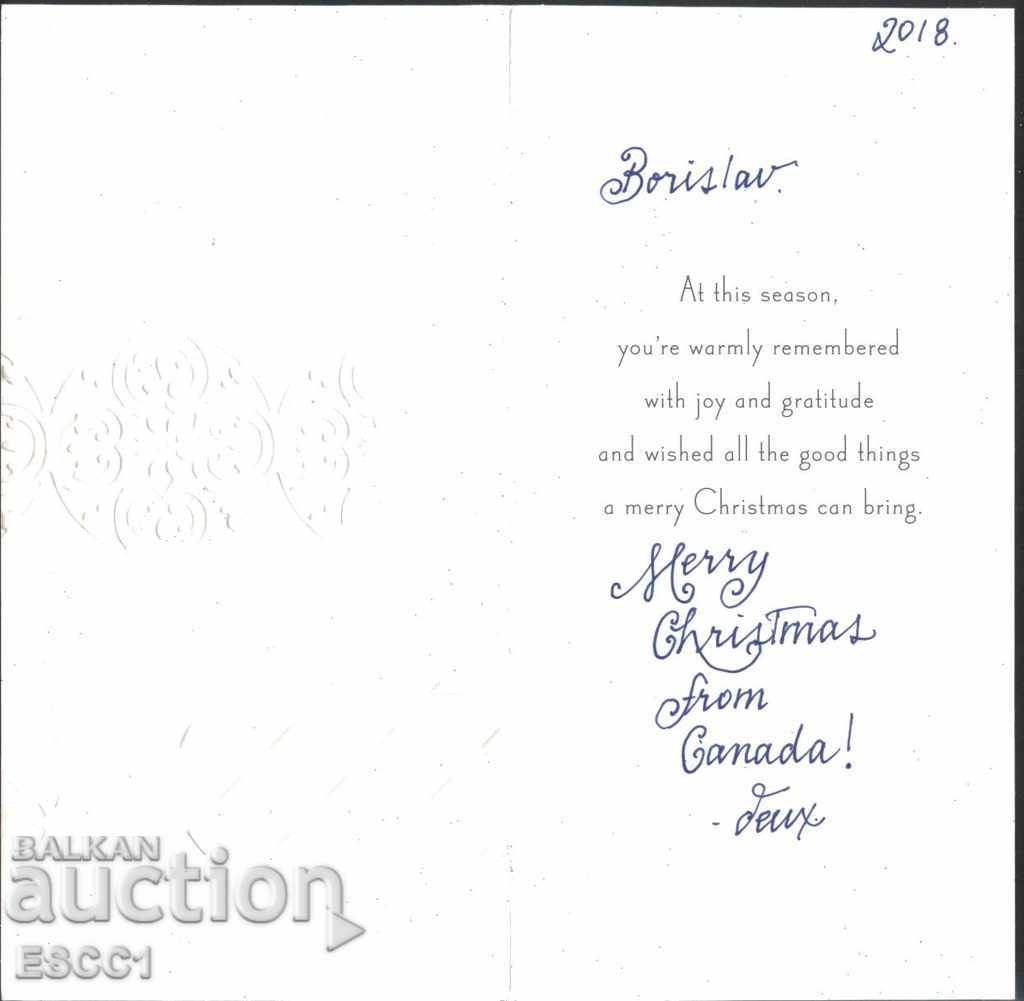 2018.
Borislav.
At this season,
you're warmly remembered
with joy and gratitude
and wished all the good things
a merry Christmas can bring.
Merry
Christmas
from
Canada!
- deux
BALKAN
auction
ESCC1